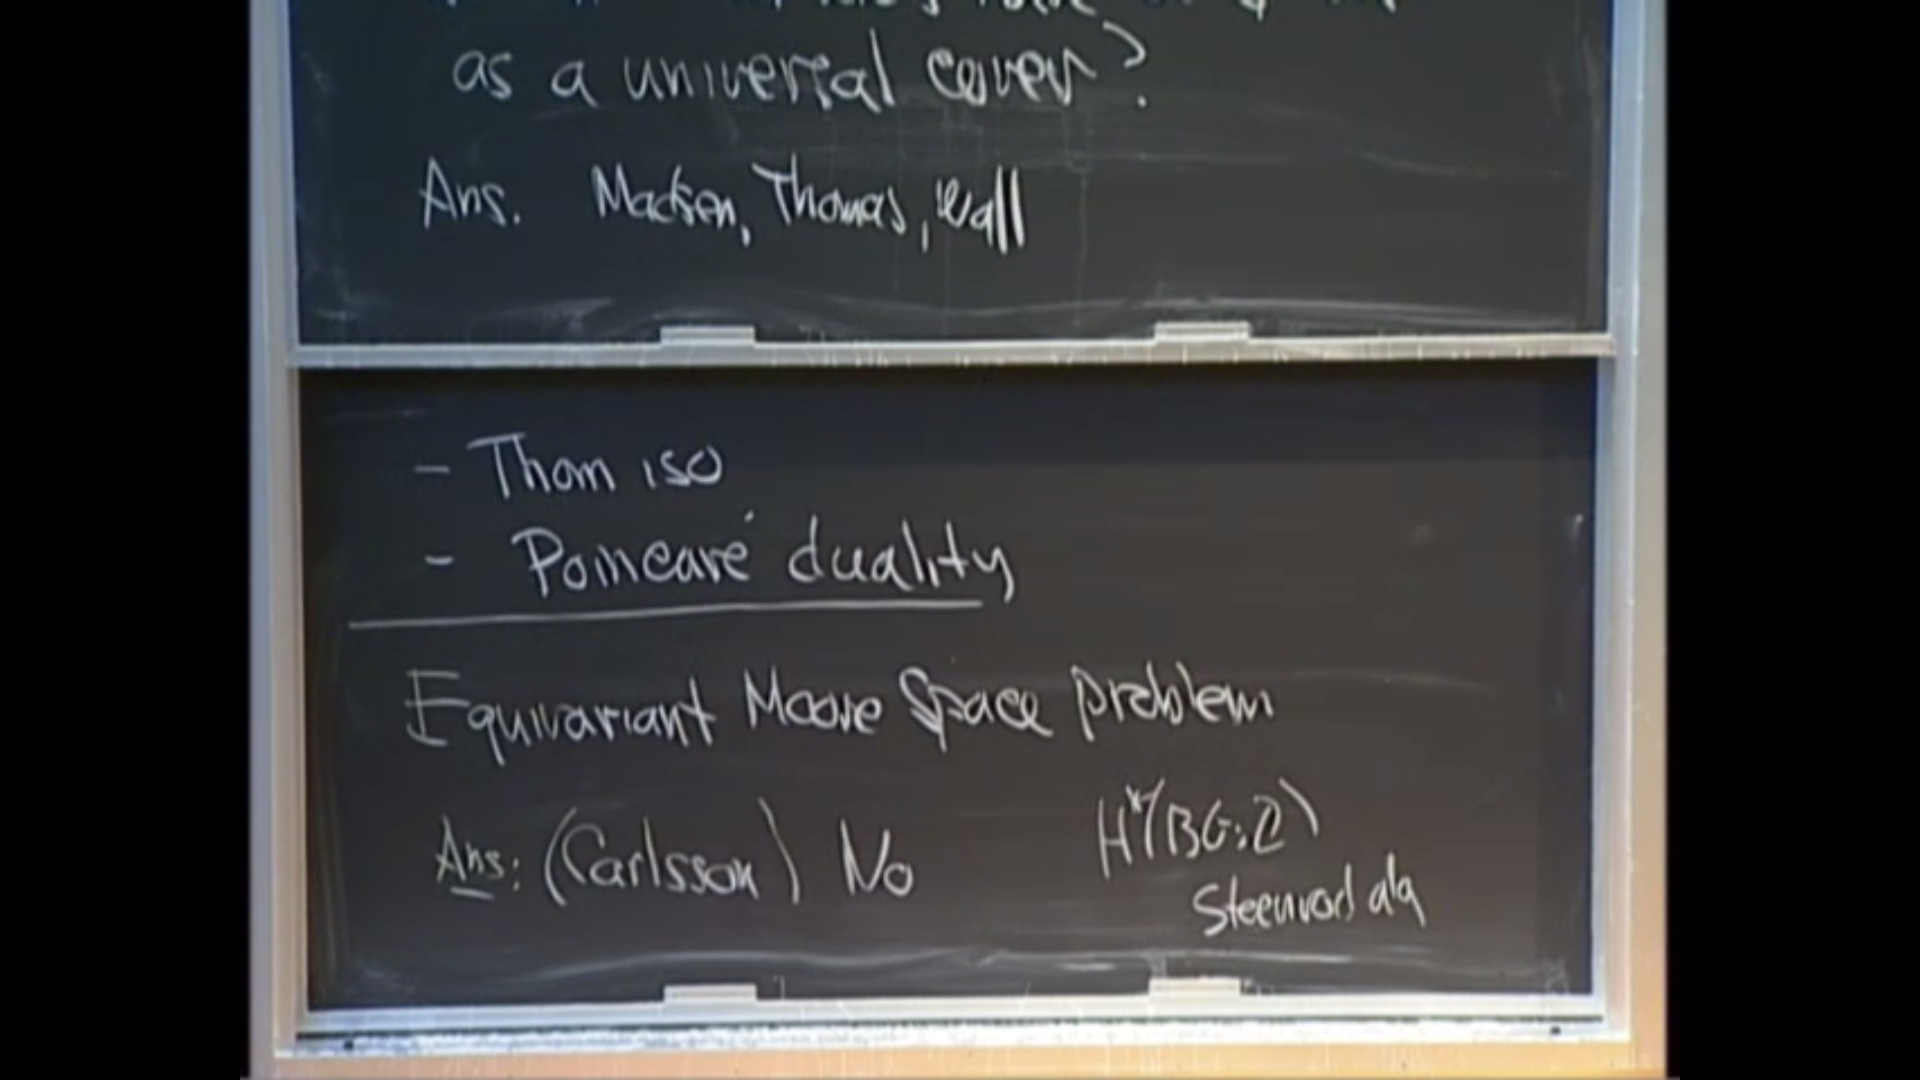 as a universal cover?
Ans. Madsen, Thomas, Wall
- Thom iso
- Poincaré duality
Equivariant Moore Space problem
Ans: (Carlsson) No
H*(BG; Z)
Steenrod alg